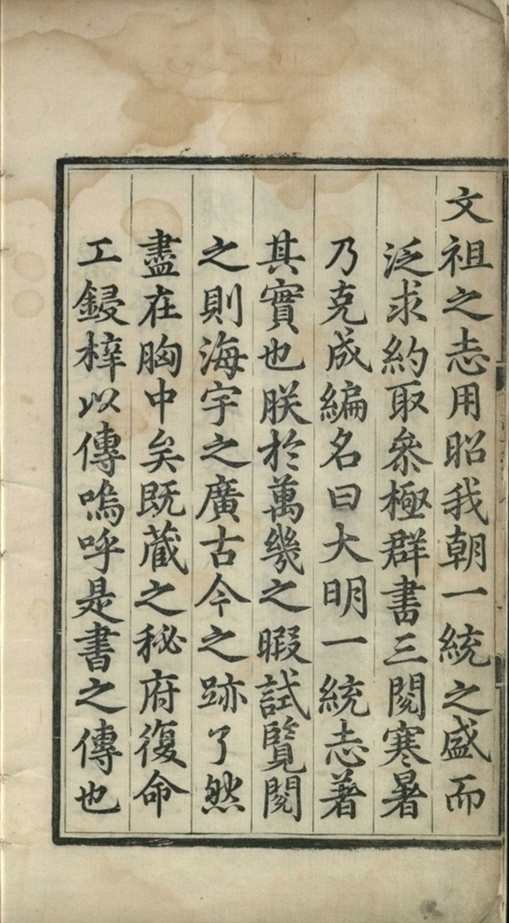 文祖之志用昭我朝一統之盛而
泛求約取叅極群書三閱寒暑
乃克成編名曰大明一統志著
其實也朕於萬幾之暇試覽閱
之則海宇之廣古今之跡了然
盡在胸中矣既蔵之秘府復命
工鋟梓以傳嗚呼是書之傳也